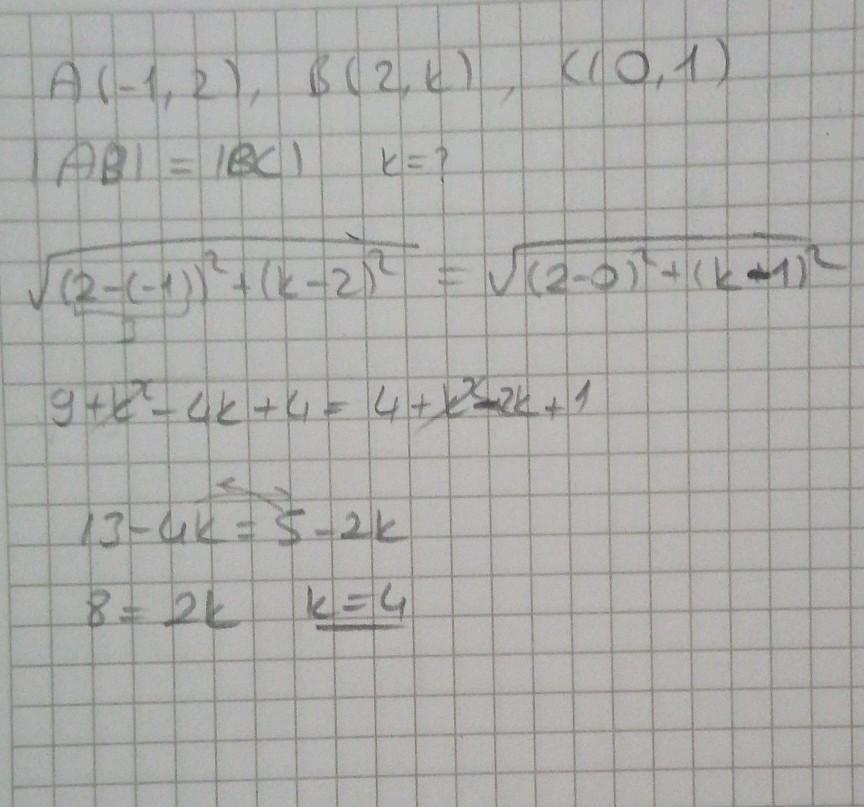 A(-1,2), B(2,k), K(0,1)
|AB| = |BK| k=?
√(2-(-1))²+(k-2)² = √(2-0)²+(k-1)²
3
9+k²-4k+4 = 4+k²-2k+1
13-4k = 5-2k
8 = 2k k=4